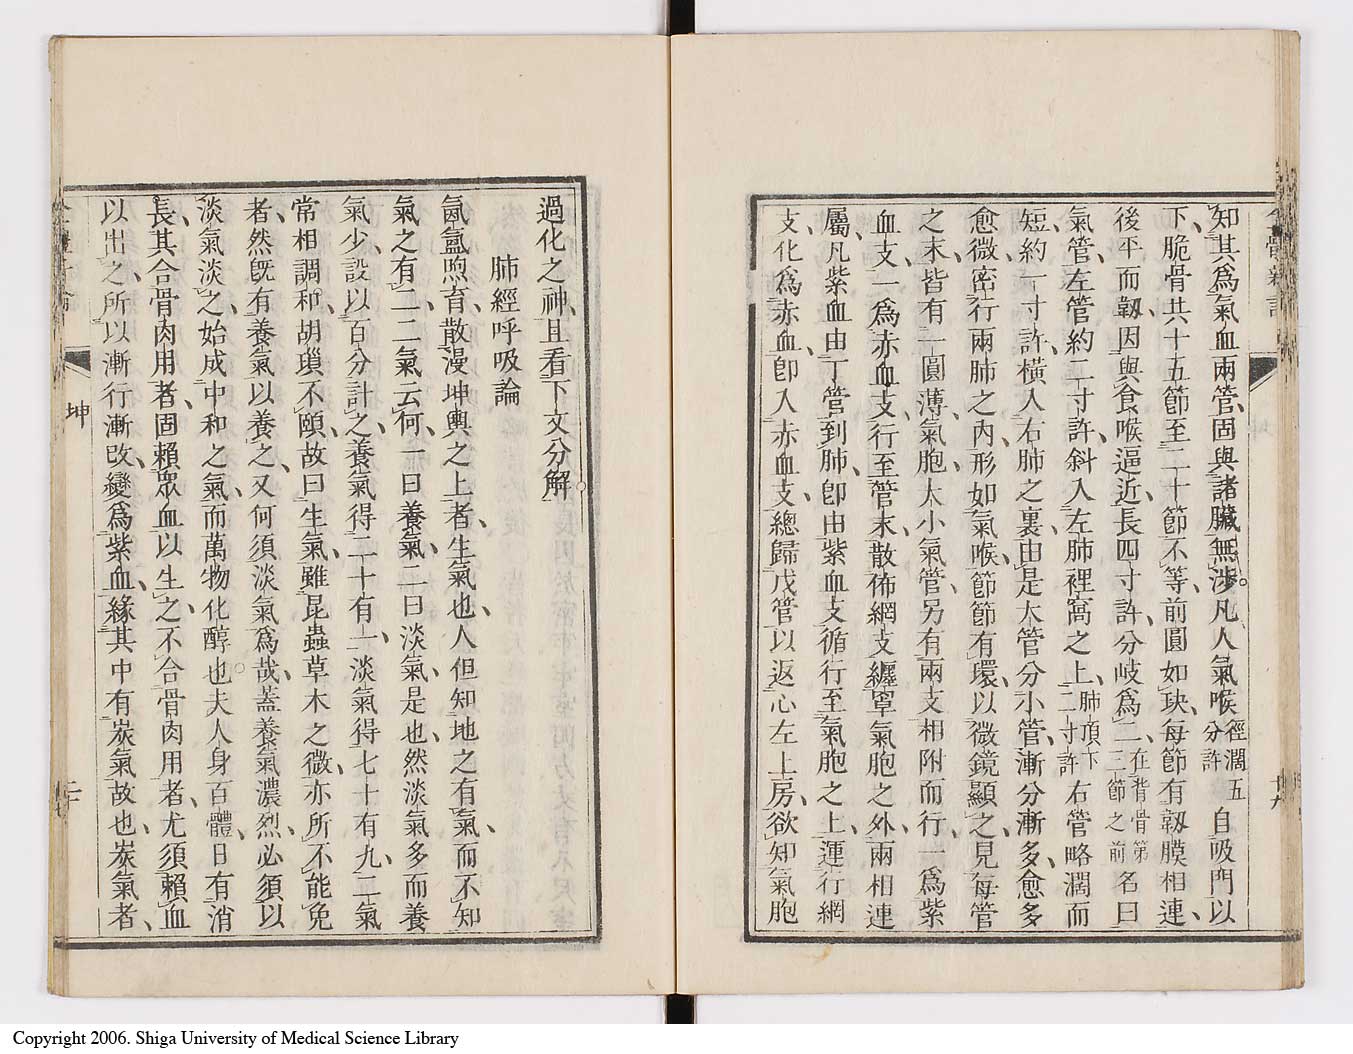 知其爲氣血兩管固與諸臟無涉凡人氣喉徑濶五分許自吸門以
下脆骨共十五節至二十節不等前圓如玦每節有韌膜相連
後平而韌因與食喉逼近長四寸許分岐爲二在背骨第三節之前名曰
氣管左管約二寸許斜入左肺裡窩之上肺頂下二寸許右管略濶而
短約一寸許橫入右肺之裏由是大管分小管漸分漸多愈多
愈微密行兩肺之內形如氣喉節節有環以微鏡顯之見每管
之末皆有一圓薄氣胞大小氣管另有兩支相附而行一爲紫
血支一爲赤血支行至管末散佈網支纏罩氣胞之外兩相連
屬凡紫血由丁管到肺卽由紫血支循行至氣胞之上運行網
支化爲赤血卽入赤血支總歸戊管以返心左上房欲知氣胞
過化之神且看下文分解
肺經呼吸論
氤氳煦育散漫坤輿之上者生氣也人但知地之有氣而不知
氣之有二二氣云何一曰養氣二曰淡氣是也然淡氣多而養
氣少設以百分計之養氣得二十有一淡氣得七十有九二氣
常相調和胡瑣不頤故曰生氣雖昆蟲草木之微亦所不能免
者然旣有養氣以養之又何須淡氣爲哉蓋養氣濃烈必須以
淡氣淡之始成中和之氣而萬物化醇也夫人身百體日有消
長其合骨肉用者固賴眾血以生之不合骨肉用者尤須賴血
以出之所以漸行漸改變爲紫血緣其中有炭氣故也炭氣者
坤
二十
十九
Copyright 2006. Shiga University of Medical Science Library